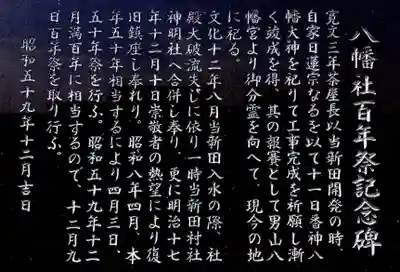 八幡社百年祭記念碑
寛文三年茶屋長以当新田開発の時、
自家日蓮宗なるを以て十一日番神八
幡大神を祀りて工事完成を祈願し漸
く竣成を得、其の報賽として男山八
幡宮より御分霊を向へて、現今の地
に祀る。
文化十二年八月当新田入水の際、社
殿大破流失しに依り一時当新田村社
神明社へ合併し奉り、更に明治十七
年十二月十日崇敬者の熱望により復
旧鎮座し奉れり。昭和八年四月、本
年五十年相当するにより四月三日、
五十年祭を行ふ。昭和五十九年十二
月満百年に相当するので、十二月九
日百年祭を取り行ふ。
昭和五十九年十二月吉日